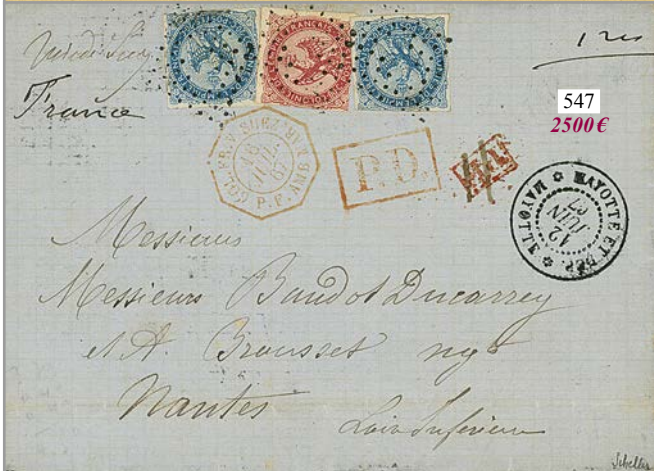 France
547
2500 €
COL. FR. V. SUEZ AMB
JUIL.
67
P.D.
MAYOTTE ET DÉP. MAYOTTE
12
JUIN
67
Messieurs
Messieurs Baudot Ducarrey
et A. Brousset ngts
Nantes
Loire Inférieure